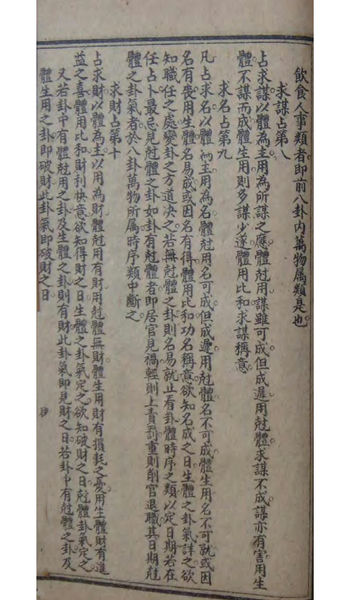 飲食人事類者即前八卦內萬物屬類是也
求謀占第八
占求謀以體為主用為所謀之應體尅用謀雖可成但成遲用尅體求謀不成謀亦有害用生
體不謀而成體生用則多謀少遂體用比和求謀稱意
求名占第九
凡占求名以體為主用為名體尅用名可成但成遲用尅體名不可成體生用名不可就或因
名有喪用生體名易成或因名有得體用比和功名稱意欲知名成之日生體之卦氣詳之欲
知職任之處變卦之方道決之若無尅體之卦則名易就止看卦體時序之類以定日期若在
任占卜最忌見尅體之卦如卦有尅體者即居官見禍輕則上責罰重則削官退職其日期尅
體之卦氣者於八卦萬物所屬時序類中斷之
求財占第十
占求財以體為主以用為財體尅用有財用尅體無財體生用財有損耗之憂用生體財有進
益之喜體用比和財利快意欲知得財之日生體之卦氣定之欲知破財之日尅體卦氣定之
又若卦中有體尅用之卦及生體之卦則有財此卦氣即見財之日若卦中有尅體之卦及
體生用之卦即破財此卦氣即破財之日